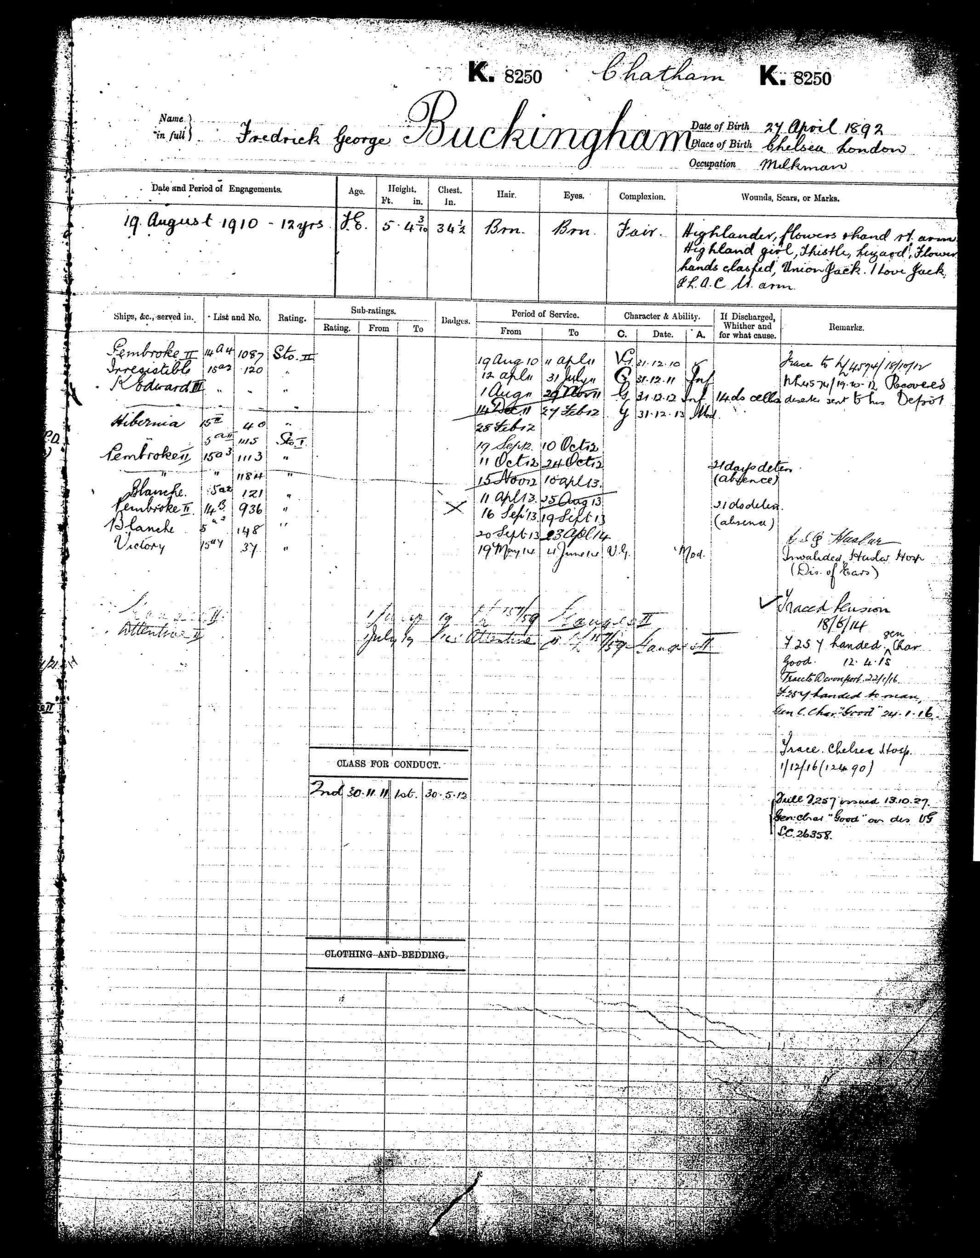 K. 8250 Chatham K. 8250
Name in full } Fredrick George Buckingham
Date of Birth 27 April 1892
Place of Birth Chelsea London
Occupation Milkman
Date and Period of Engagements. Age. Height. Ft. in. Chest. In. Hair. Eyes. Complexion. Wounds, Scars, or Marks.
19 August 1910 - 12 yrs F.E. 5 - 4 3/10 34 1/2 Brn. Brn. Fair.
Highlander, flowers & hand rt. arm
Highland girl, Thistle, Lizard, Flower
hands clasped, Union Jack. I Love Jack
arm
Ships, &c., served in. List and No. Rating. Sub-ratings. Rating. From To Badges. Period of Service. From To Character & Ability. C. Date. A. If Discharged, Whither and for what cause. Remarks.
Pembroke II 15a4 1087 Sto. II 19 Aug 10 11 apl 11 VG 31-12-10
Irresistible 15a2 120 " 12 apl 11 31 July 11 G 31-12-11 Inf
K Edward VII " " " 1 Aug 11 29 Nov 11 G 31-12-12 Inf 14 ds cells
14 Dec 11 27 Feb 12 G 31-12-13 Mod.
Hibernia 15a 40 " 28 Feb 12
5a 1115 Sto. I 19 Sep 12 10 Oct 12
Pembroke II 15a3 1113 " 11 Oct 12 24 Oct 12
" " 1184 " 15 Nov 12 10 apl 13 21 days deten (absence)
Blanche 5a2 121 " 11 apl 13 25 Aug 13
Pembroke II 936 " 16 Sep 13 19 Sept 13 21 ds deten. (absence)
Blanche 148 " 20 Sept 13 23 Apl 14
Victory 37 " 19 May 14 4 June 14 V.G. Mod.
Trace to
Recovered
deserter sent to his Depôt
Haslar
Invalided, Haslar Hosp
(Dis. of Ears)
Traced Pension
18/8/14
handed gen Char
Good. 12.4.15
Trace to Devonport. 22/1/16
handed to man,
Gen l. Char. "Good" 24.1.16.
Attentive II July Attentive Ganges II
Trace. Chelsea Hosp.
1/12/16 (12490)
CLASS FOR CONDUCT.
2nd 30.11.11 1st. 30.5.12
issued 13.10.27.
Gen Char "Good" on dis VG
26358.
CLOTHING AND BEDDING.